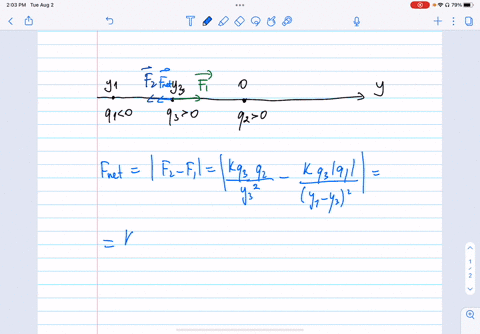 2:03 PM Tue Aug 2
79%
y1 F₂ Fnet y₃ F₁ 0 y
q₁<0 q₃>0 q₂>0
Fnet = |F₂-F₁| = |Kq₃ q₂/y₃² - Kq₃|q₁|/(y₁-y₃)²| =
=
1
2